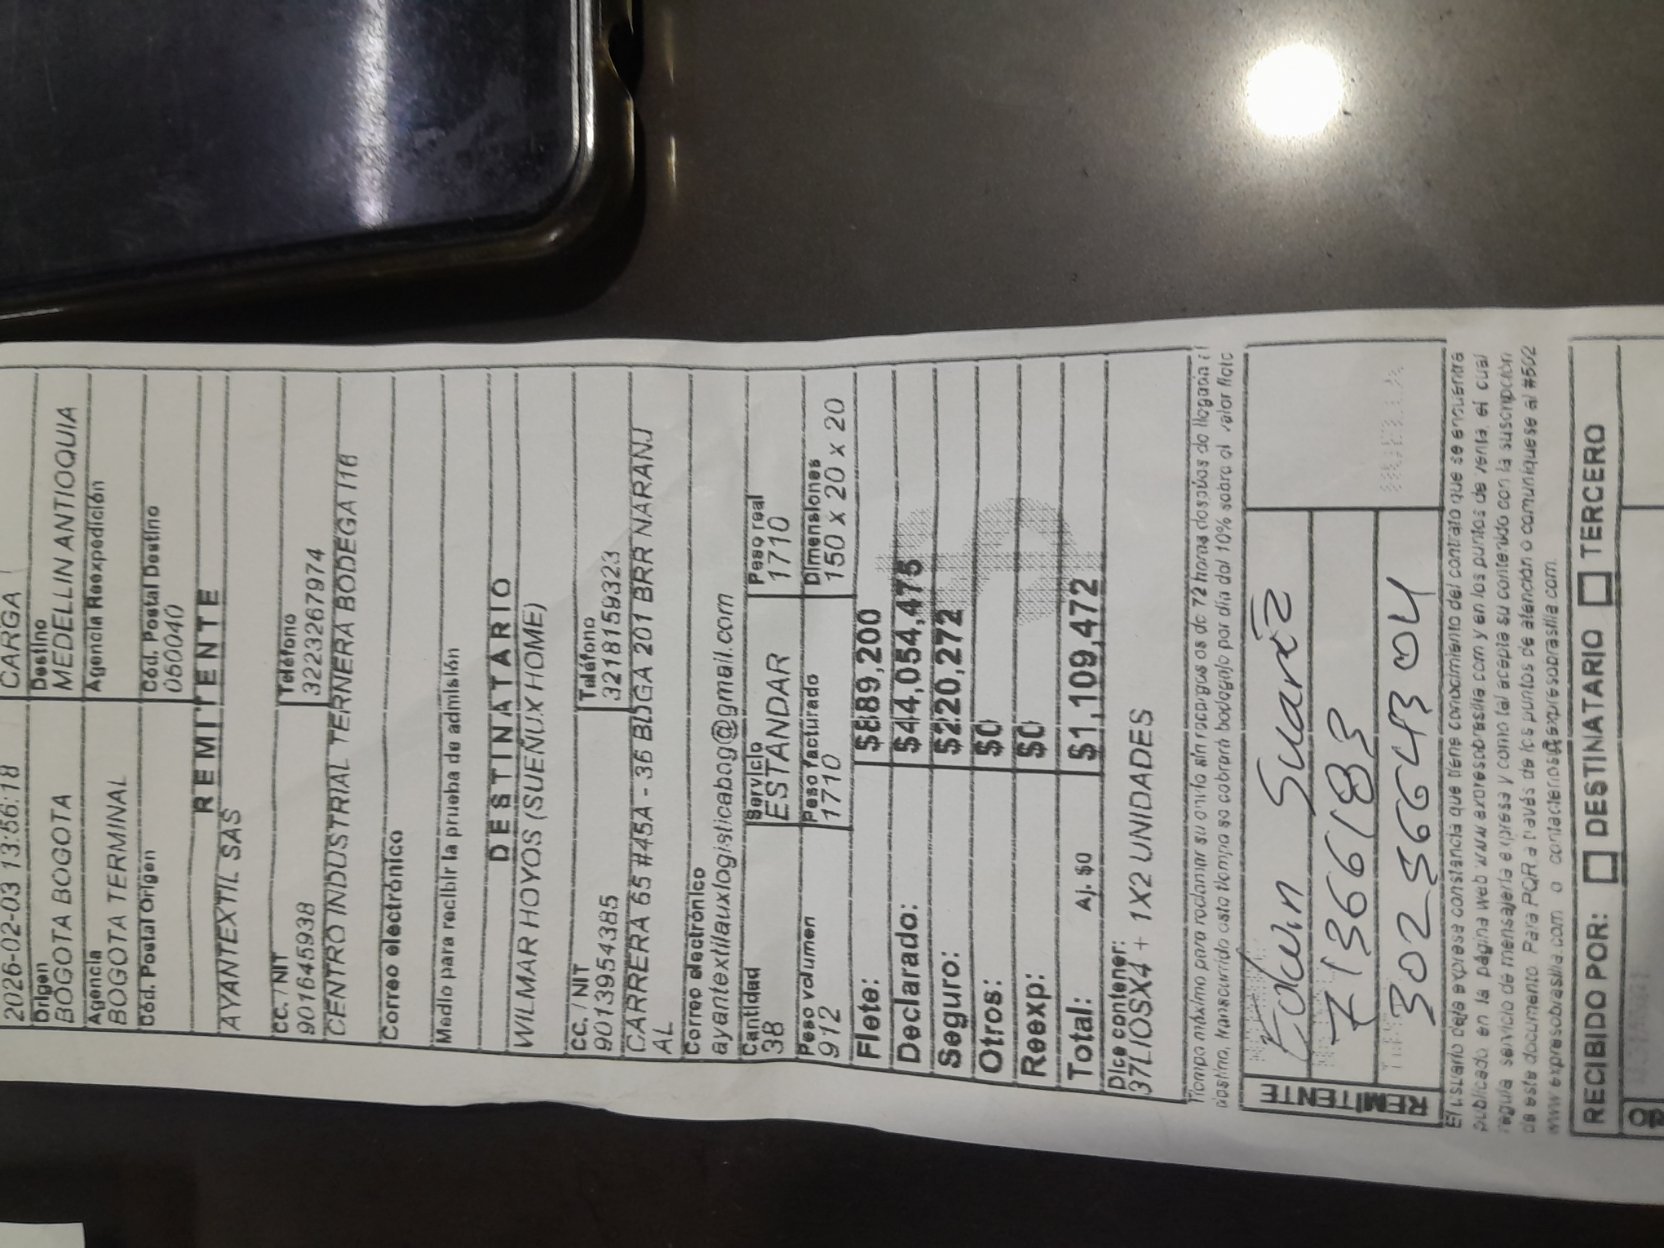 2026-02-03 13:56:18 CARGA
Origen Destino
BOGOTA BOGOTA MEDELLIN ANTIOQUIA
Agencia Agencia Reexpedición
BOGOTA TERMINAL
Cód. Postal Origen Cód. Postal Destino
050040
REMITENTE
AYANTEXTIL SAS
CC. / NIT Teléfono
901645938 3223267974
CENTRO INDUSTRIAL TERNERA BODEGA I16
Correo electrónico
Medio para recibir la prueba de admisión
DESTINATARIO
WILMAR HOYOS (SUEÑUX HOME)
CC. / NIT Teléfono
9013954385 3218159323
CARRERA 65 #45A - 36 BDGA 201 BRR NARANJ
AL
Correo electrónico
ayantextilauxlogisticabog@gmail.com
Cantidad Servicio Peso real
38 ESTANDAR 1710
Peso volumen Peso facturado Dimensiones
912 1710 150 x 20 x 20
Flete: $889,200
Declarado: $44,054,475
Seguro: $220,272
Otros: $0
Reexp: $0
Total: Aj. $0 $1,109,472
Dice contener:
37LIOSX4 + 1X2 UNIDADES
Tiempo máximo para reclamar su envío sin recargos es de 72 horas después de llegada al
destino, transcurrido este tiempo se cobrará bodegaje por día del 10% sobre el valor flete
REMITENTE
Edwin Suarez
71366183
3023664304
El usuario deja expresa constancia que tiene conocimiento del contrato que se encuentra
publicado en la página web www.expresobrasilia.com y en los puntos de venta, el cual
regula servicio de mensajería expresa y como tal acepta su contenido con la suscripción
de este documento. Para PQR a través de los puntos de atención o comuníquese al #502
www.expresobrasilia.com o contactenos@expresobrasilia.com.
RECIBIDO POR: DESTINATARIO TERCERO